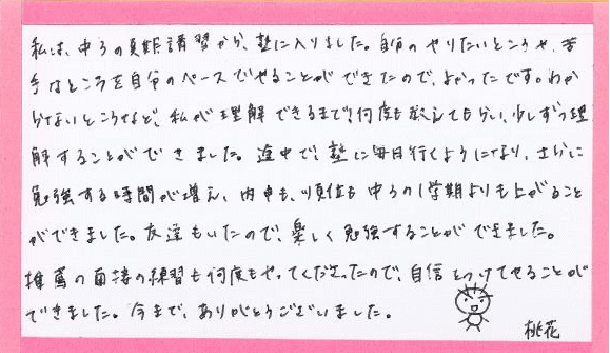 私は、中3の夏期講習から、塾に入りました。自分のやりたいところや、苦
手なところを自分のペースでやることができたので、よかったです。わか
らないところなど、私が理解できるまで何度も教えてもらい、少しずつ理
解することができました。途中で、塾に毎日行くようになり、さらに
勉強する時間が増え、内申も、順位も中3の1学期よりも上がること
ができました。友達もいたので、楽しく勉強することができました。
推薦の面接の練習も何度もやってくださったので、自信をつけてやることが
できました。今まで、ありがとうございました。
桃花